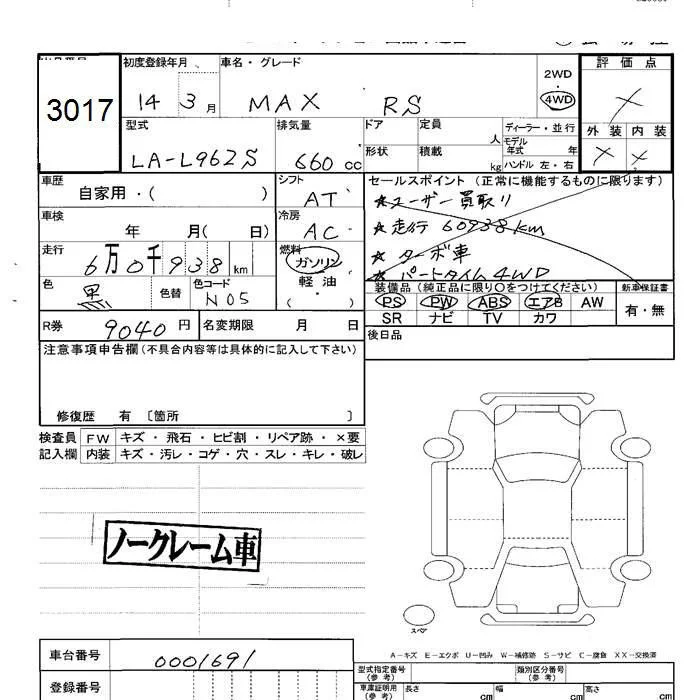 3017
初度登録年月 車名・グレード
14 3月 MAX RS
2WD
4WD
評価点
外装 内装
型式 排気量 ドア 定員
LA-L962S 660 cc 形状 積載
人
kg
ディーラー・並行
モデル年式 年
ハンドル 左・右
車歴 シフト
自家用・( ) AT
車検 冷房
年 月( 日) AC
走行 燃料
6万0千938km ガソリン
軽油
( )
色 色替 色コード
黒 N05
セールスポイント (正常に機能するものに限ります)
★ユーザー買取り
★走行 60938km
★ターボ車
★パートタイム4WD
装備品 (純正品に限り○をつけてください) 新車保証書
PS PW ABS エアB AW 有・無
SR ナビ TV カワ
R券 9040円 名変期限 月 日
後日品
注意事項申告欄(不具合内容等は具体的に記入して下さい)
修復歴 有 〔箇所 〕
検査員 FW キズ・飛石・ヒビ割・リペア跡・×要
記入欄 内装 キズ・汚レ・コゲ・穴・スレ・キレ・破レ
ノークレーム車
スペア
A-キズ E-エクボ U-凹み W-補修跡 S-サビ C-腐食 XX-交換済
車台番号 0001691
登録番号
型式指定番号(参考) 類別区分番号(参考)
車庫証明用(参考) 長さ cm 幅 cm 高さ cm